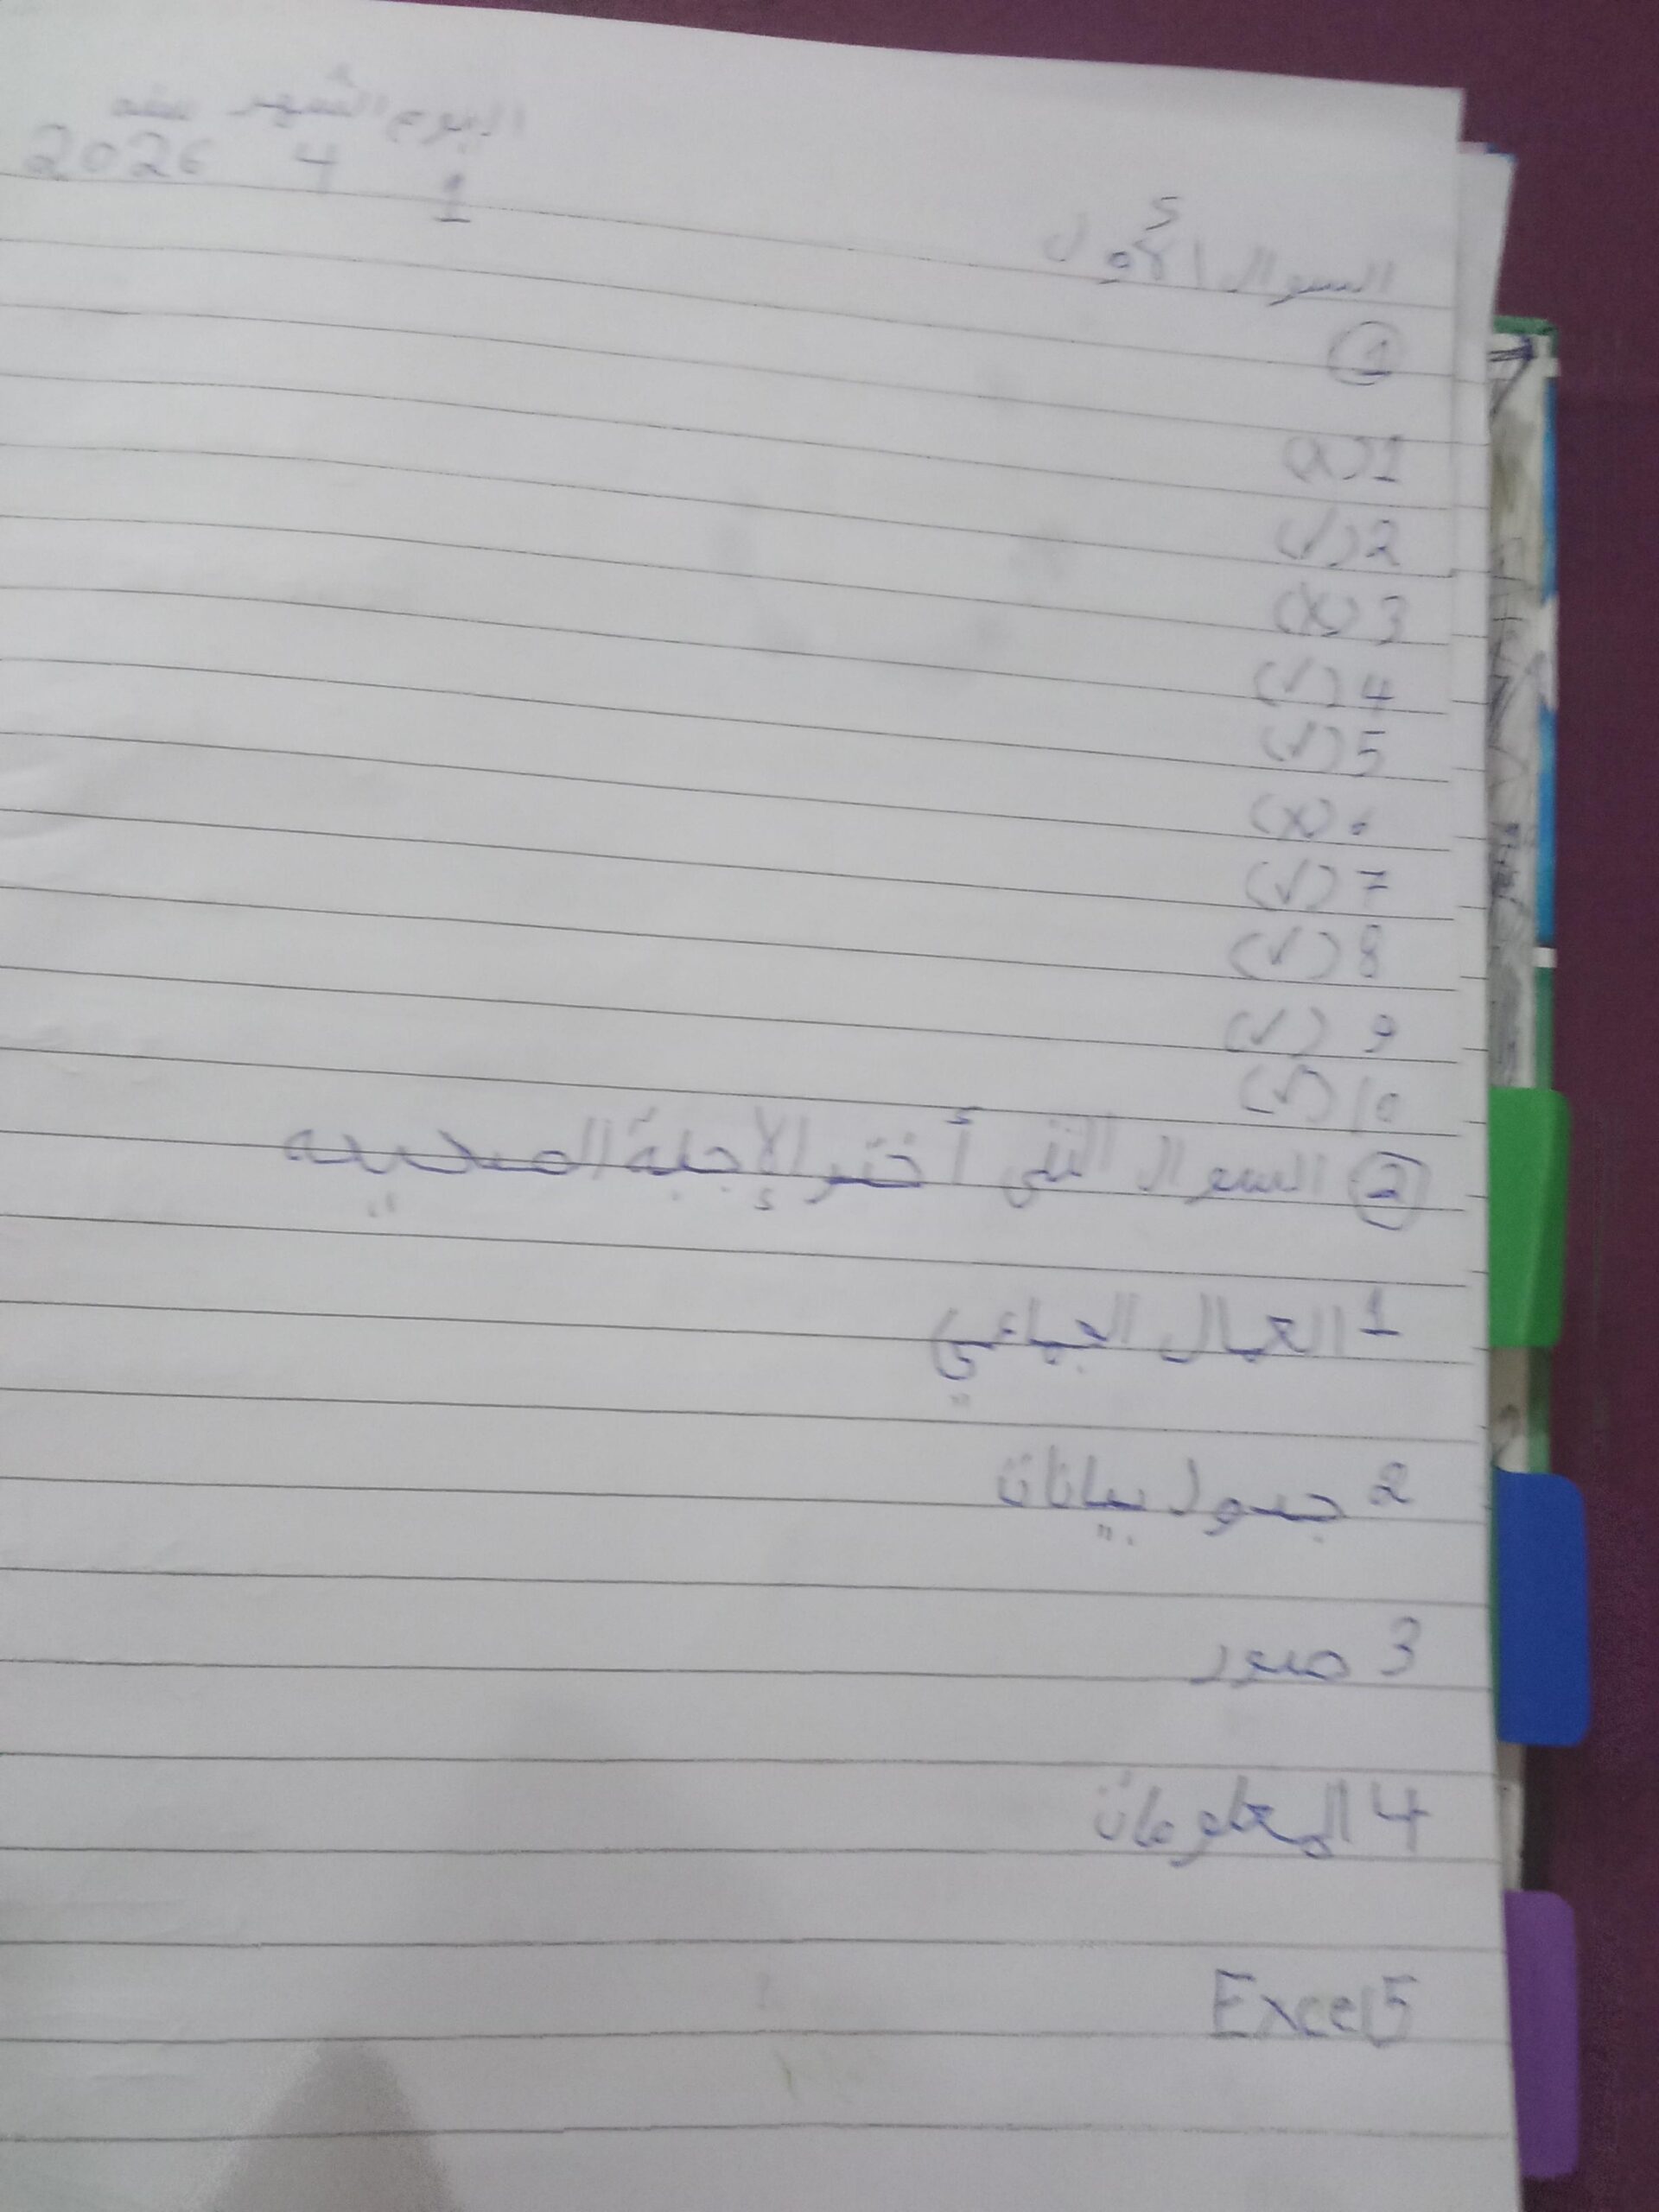 اليوم الشهر سنه
1 4 2026
السوال الأول
1
1 (x)
2 (✓)
3 (x)
4 (✓)
5 (✓)
6 (x)
7 (✓)
8 (✓)
9 (✓)
10 (✓)
2 السوال الثني أختر الإجابة الصحيحه
1 العمال الجماعي
2 جدول بيانات
3 صور
4 المعلومات
Excel 5